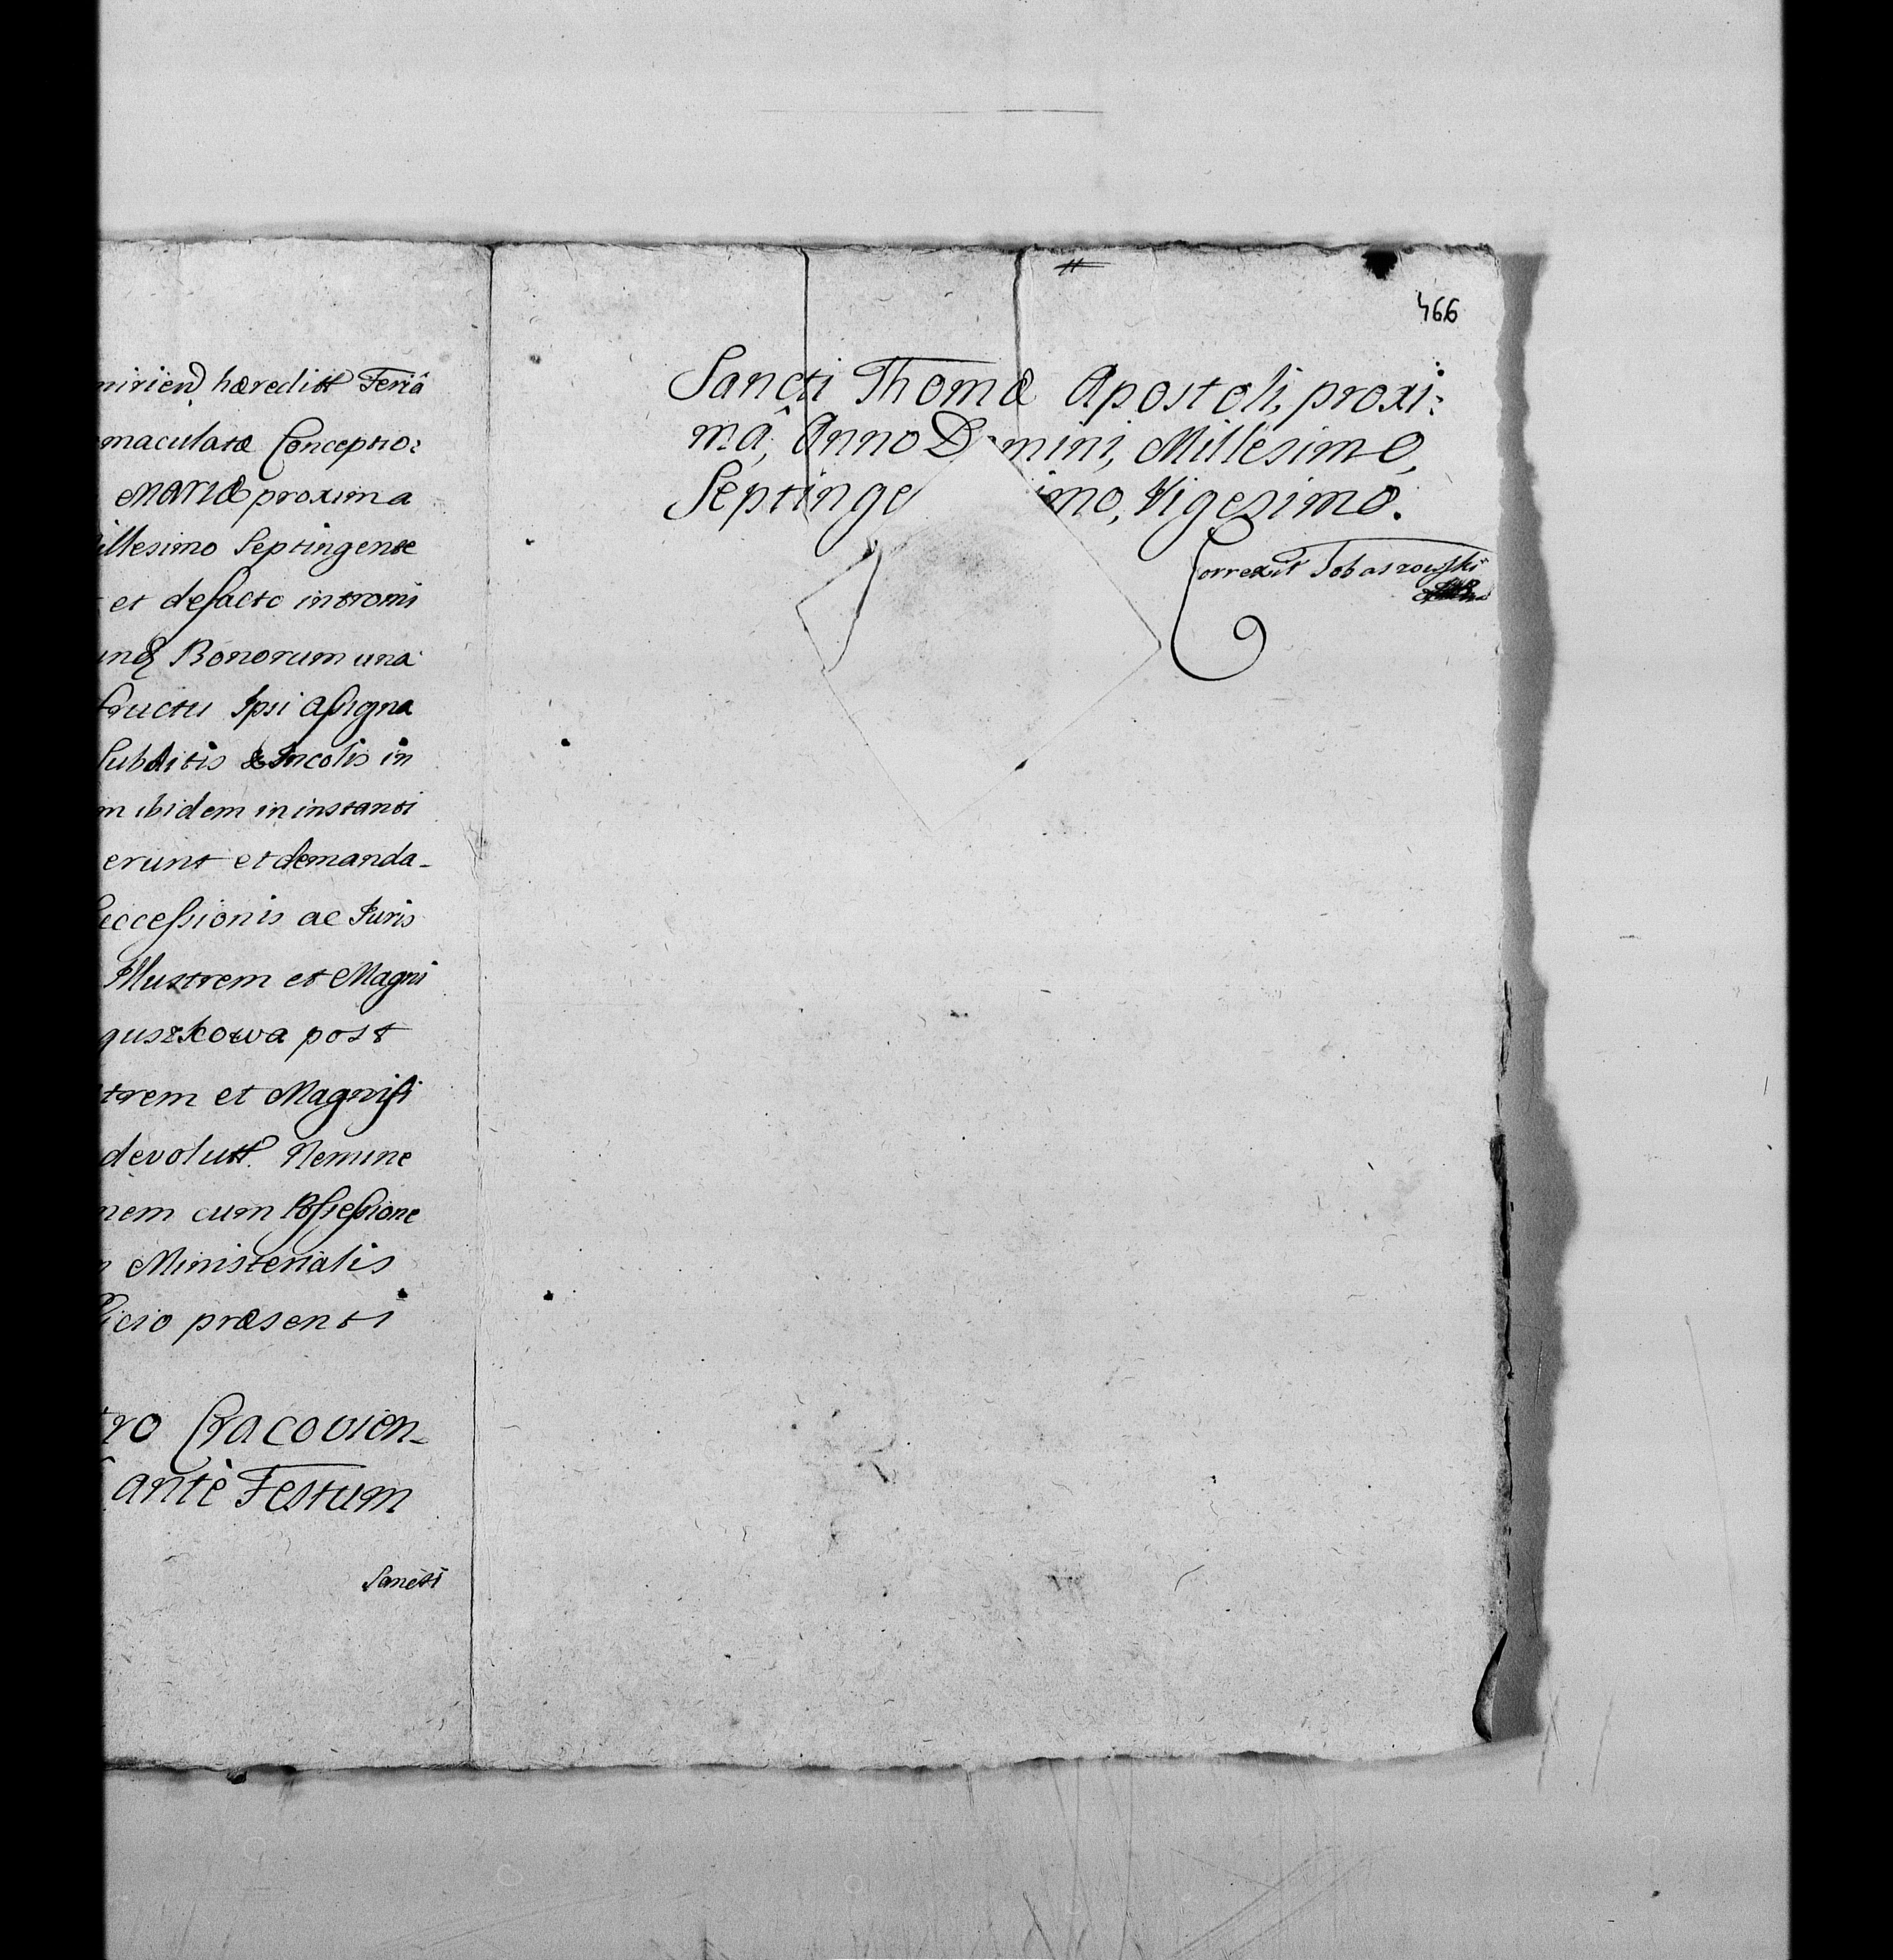 niriend hæreditt Feriâ
maculatæ Conceptio:
MARIÆ proxima
illesimo Septingente
et defacto intromi
unq Bonorum una
fructu Ipsi assigna
Subditis & Incolis in
m ibidem in instanti
erunt et demanda-
uccessionis ac Juris
Illustrem et Magni
guszkowa post
trem et Magnifi
devolutt. Nemine
nem cum Possessione
Ministerialis
ficio præsenti
tro Cracovien-
antè Festum
Sancti
466
Sancti Thomæ Apostoli, proxi:
mâ, Anno Domini, Millesimo,
Septinge imo, Vigesimo.
Correxit